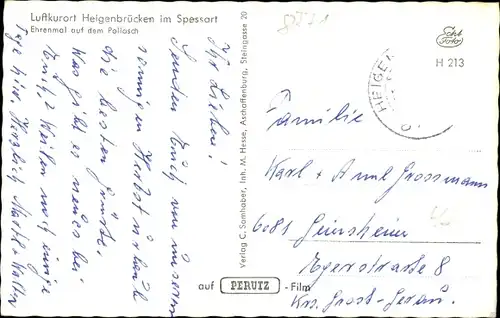 Luftkurort Heigenbrücken im Spessart
Ehrenmal auf dem Pollasch
Echt
Foto
H 213
HEIGE
Ihr Lieben!
Senden Euch von unserem
sonnigen Herbsturlaub
die besten Grüße.
Was gibt es neues bei
Euch? Weilen noch einige
Tage hier. Herzlich
Verlag C. Samhaber, Inh. M. Hesse, Aschaffenburg, Steingasse 20
auf PERUTZ - Film
Familie
Karl + Grossmann
6081 Geinsheim
Egerstrasse 8
Krs. Gross-Gerau.